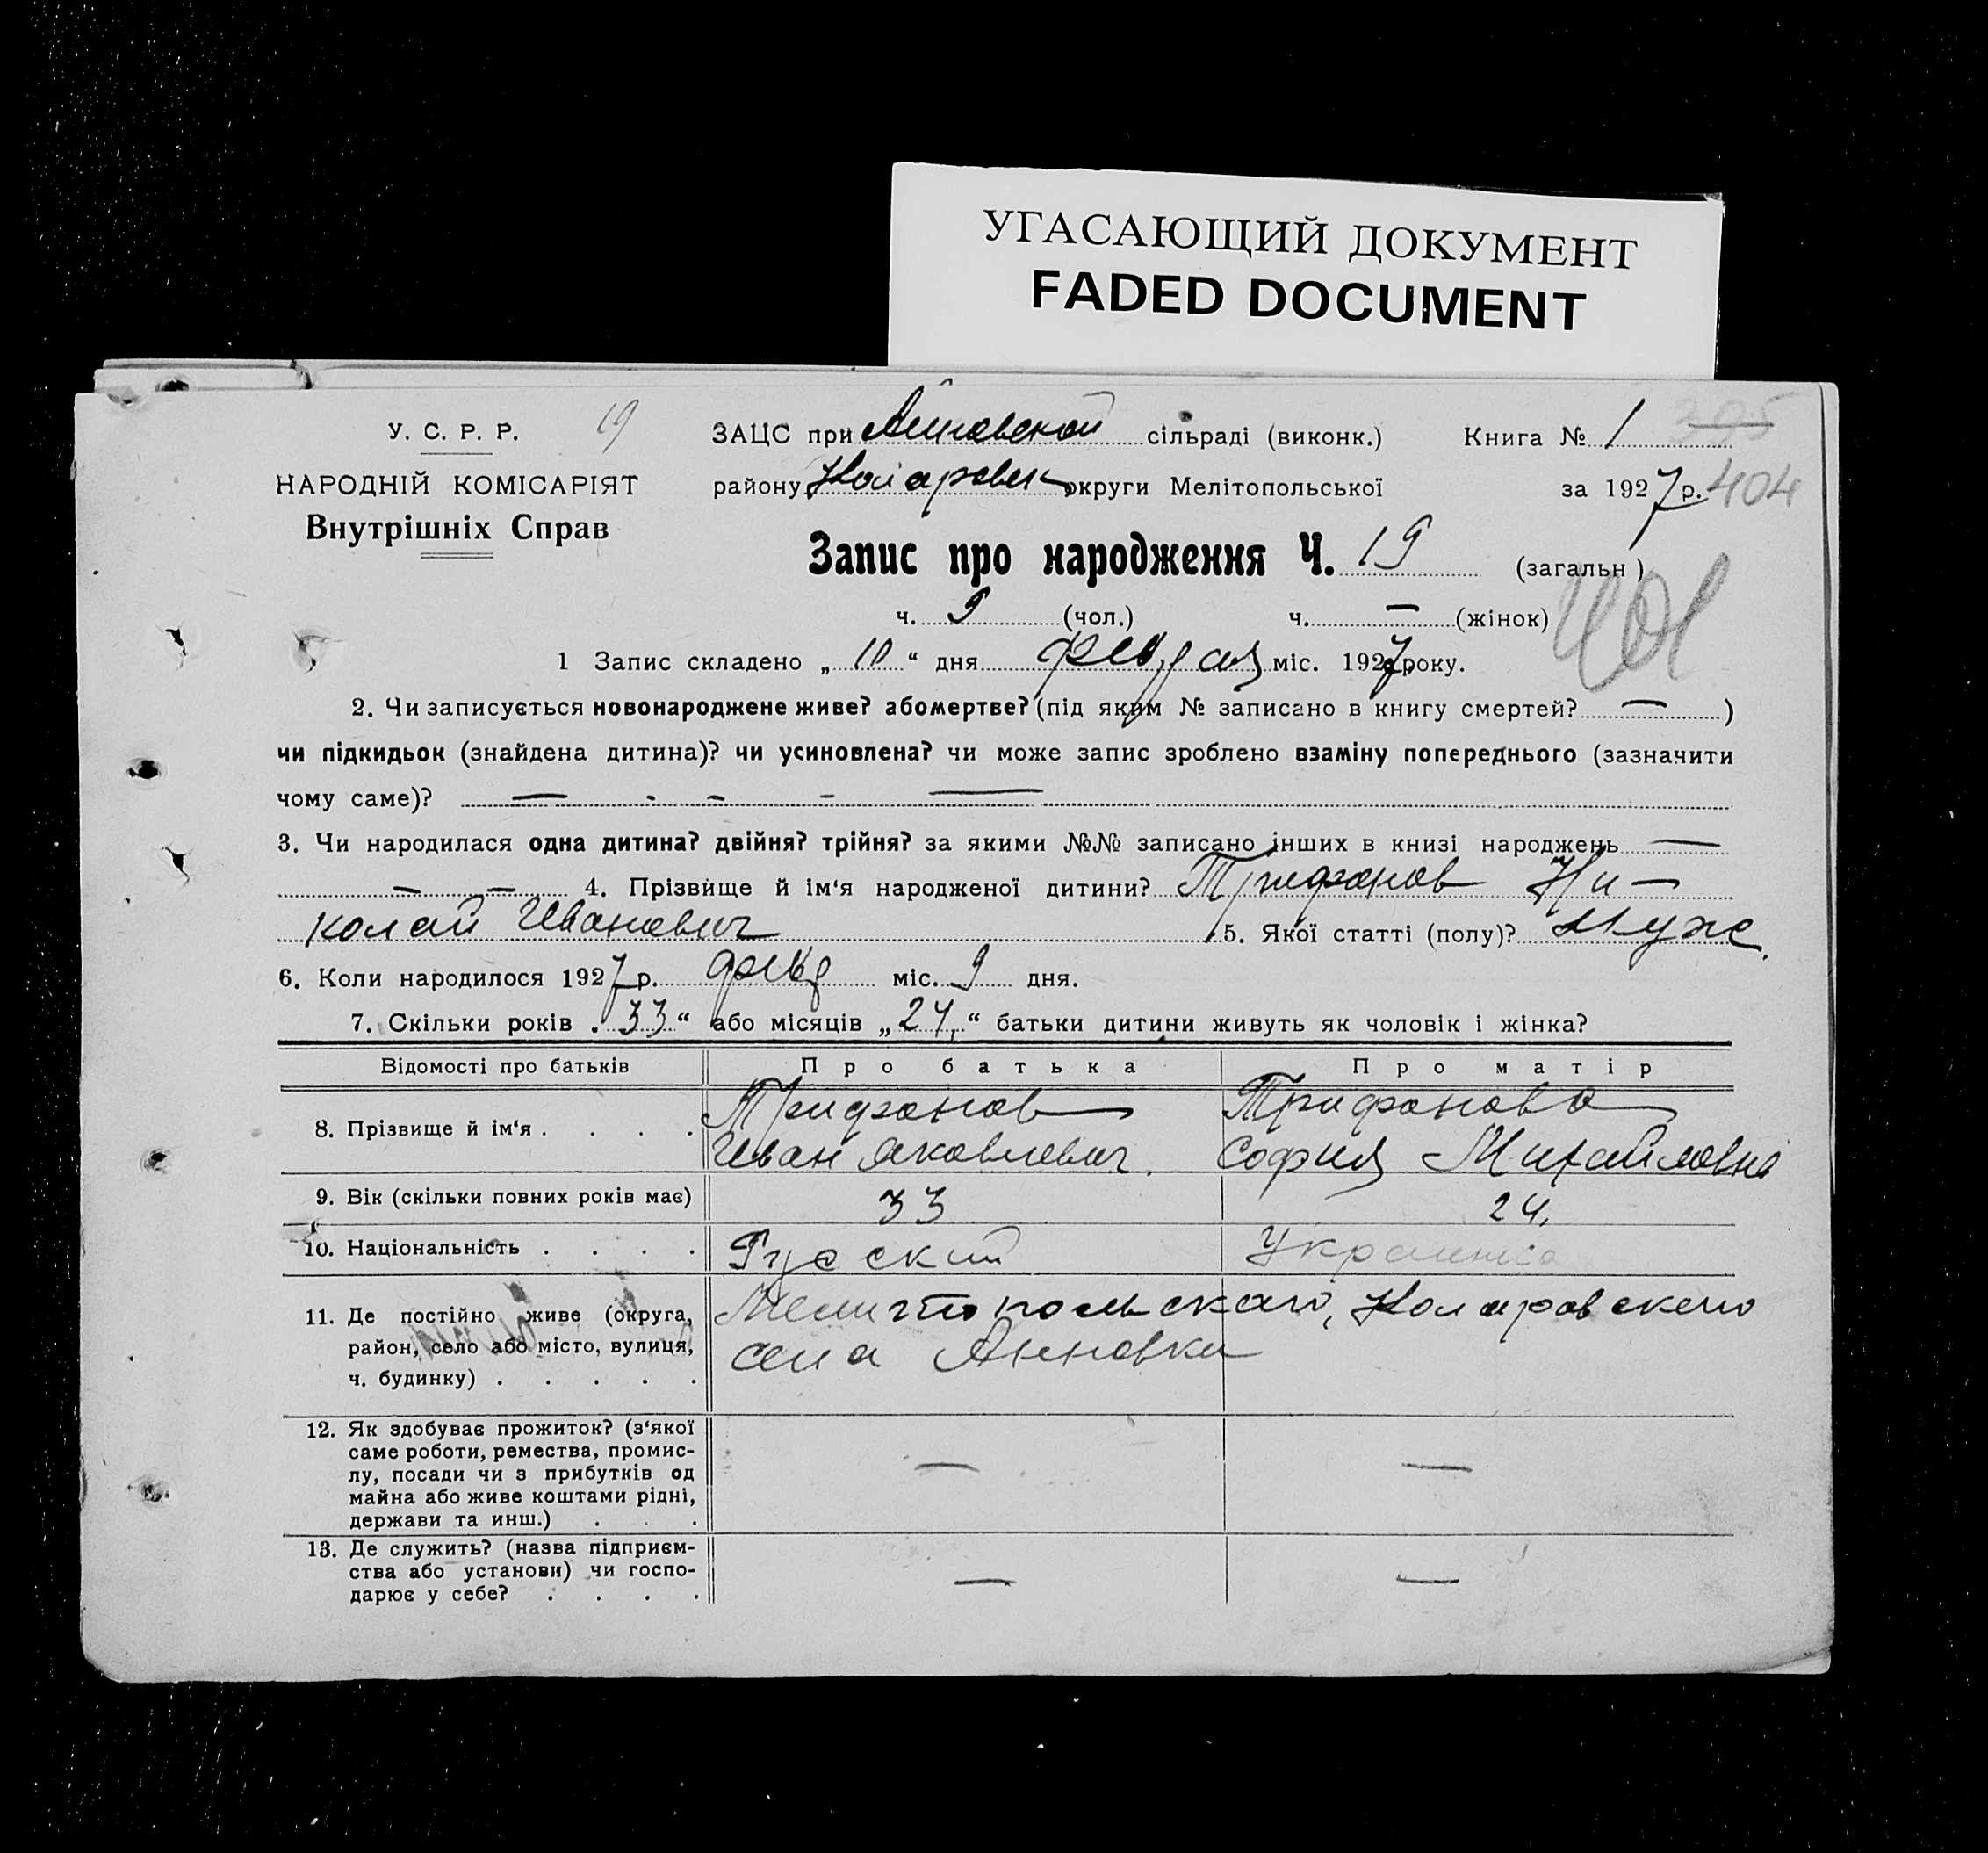 УГАСАЮЩИЙ ДОКУМЕНТ
FADED DOCUMENT
У. С. Р. Р. 19
НАРОДНІЙ КОМІСАРІЯТ
Внутрішніх Справ
ЗАЦС при Анновской сільраді (виконк.) Книга № 1 395
району Коларовск округи Мелітопольської за 1927 р. 404
Запис про народження Ч. 19 (загальн)
ч. 9 (чол.) ч. — (жінок) 401
1 Запис складено „ 10 “ дня февраля міс. 1927 року.
2. Чи записується новонароджене живе? або мертве? (під яким № записано в книгу смертей? — )
чи підкидьок (знайдена дитина)? чи усиновлена? чи може запис зроблено взаміну попереднього (зазначити
чому саме)? — - - - —
3. Чи народилася одна дитина? двійня? трійня? за якими №№ записано інших в книзі народжень —
— — 4. Прізвище й ім‘я народженої дитини? Трифонов Ни-
колай Иванович 5. Якої статті (полу)? Муж.
6. Коли народилося 1927 р. февр міс. 9 дня.
7. Скільки років „ 33 “ або місяців „ 24, “ батьки дитини живуть як чоловік і жінка?
Відомості про батьків Про батька Про матір
8. Прізвище й ім‘я . . . . Трифонов Иван Яковлевич. Трифонова София Михайловна
9. Вік (скільки повних років має) 33 24,
10. Національність . . . . Русский Украинка
11. Де постійно живе (округа, Мелитопольского, Коларовского
район, село або місто, вулиця, села Анновки
ч. будинку) . . . . .
12. Як здобуває прожиток? (з‘якої
саме роботи, ремества, промис-
лу, посади чи з прибутків од — —
майна або живе коштами рідні,
держави та инш.) . . .
13. Де служить? (назва підприєм-
ства або установи) чи госпо- — —
дарює у себе? . . . .